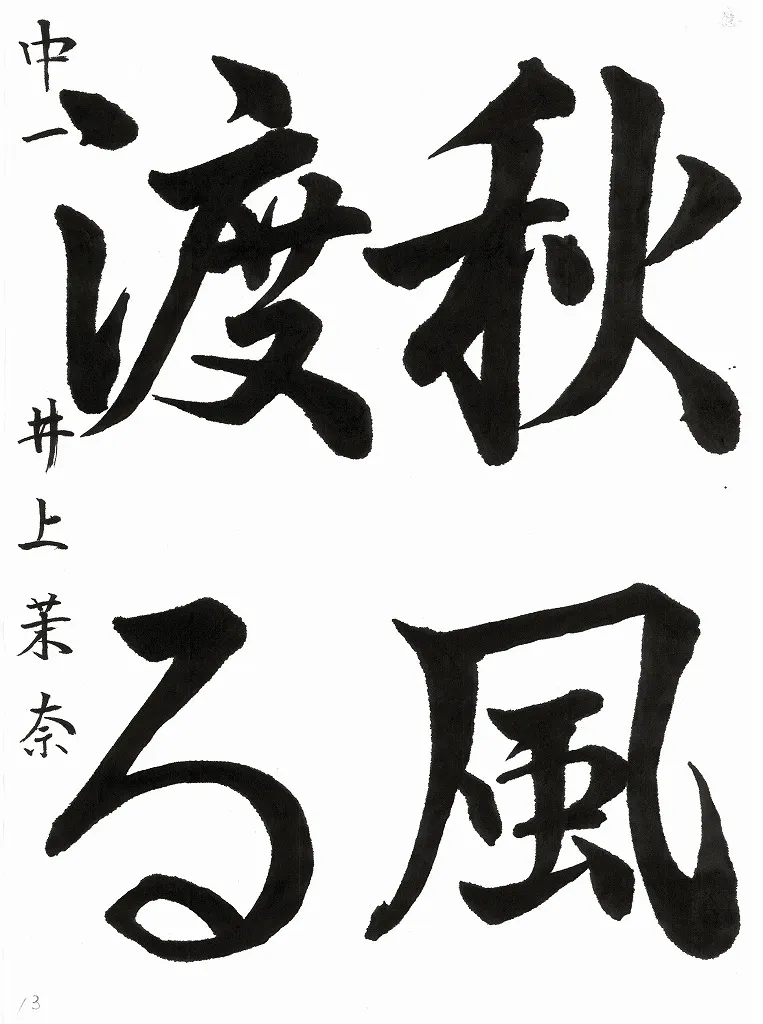 秋風
渡る
中一 井上茉奈
13